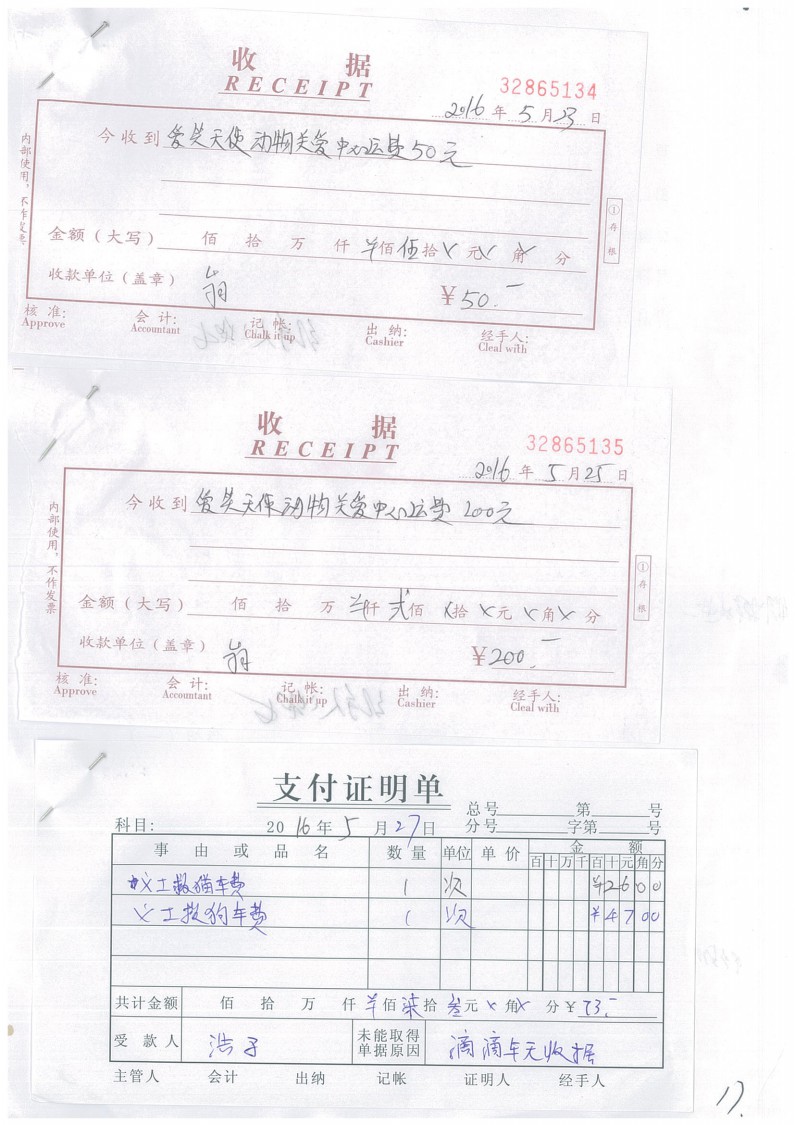 收 据
RECEIPT
32865134
2016 年 5 月 23 日
今收到 爱芙天使动物关爱中心运费50元
金额（大写） 佰 拾 万 仟 ¥佰 伍拾 X元 X角 X分
收款单位（盖章）
¥50.—
核 准: 会 计: 记 帐: 出 纳: 经手人:
Approve Accountant Chalk it up Cashier Cleal with
内部使用，不作发票
①存根
收 据
RECEIPT
32865135
2016 年 5 月 25 日
今收到 爱芙天使动物关爱中心运费 200元
金额（大写） 佰 拾 万 ¥仟 贰佰 X拾 X元 X角 X分
收款单位（盖章）
¥200.—
核 准: 会 计: 记 帐: 出 纳: 经手人:
Approve Accountant Chalk it up Cashier Cleal with
内部使用，不作发票
①存根
支付证明单
总号 第 号
科目: 2016年 5 月 27日 分号 字第 号
事 由 或 品 名 数 量 单位 单 价 金 额
百 十 万 千 百 十 元 角 分
义工救猫车费 1 次 ¥26 00
义工救狗车费 1 次 ¥47 00
共计金额 佰 拾 万 仟 ¥佰 柒拾 叁元 X角 X分 ¥ 73.—
受 款 人 浩子 未能取得单据原因 滴滴车无收据
主管人 会计 出纳 记帐 证明人 经手人
17.